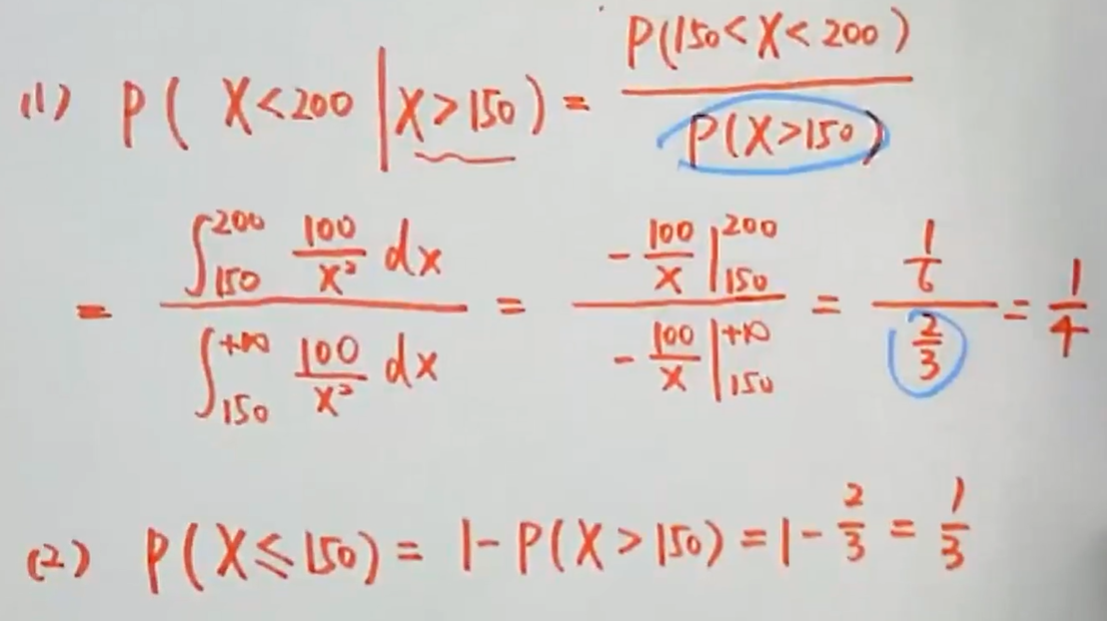 (1) P( X<200 | X>150 ) = P(150<X<200) / P(X>150)
= ∫₁₅₀²⁰⁰ 100/x² dx / ∫₁₅₀⁺∞ 100/x² dx = -100/x |₁₅₀²⁰⁰ / -100/x |₁₅₀⁺∞ = 1/6 / 2/3 = 1/4
(2) P(X≤150) = 1-P(X>150) = 1-2/3 = 1/3